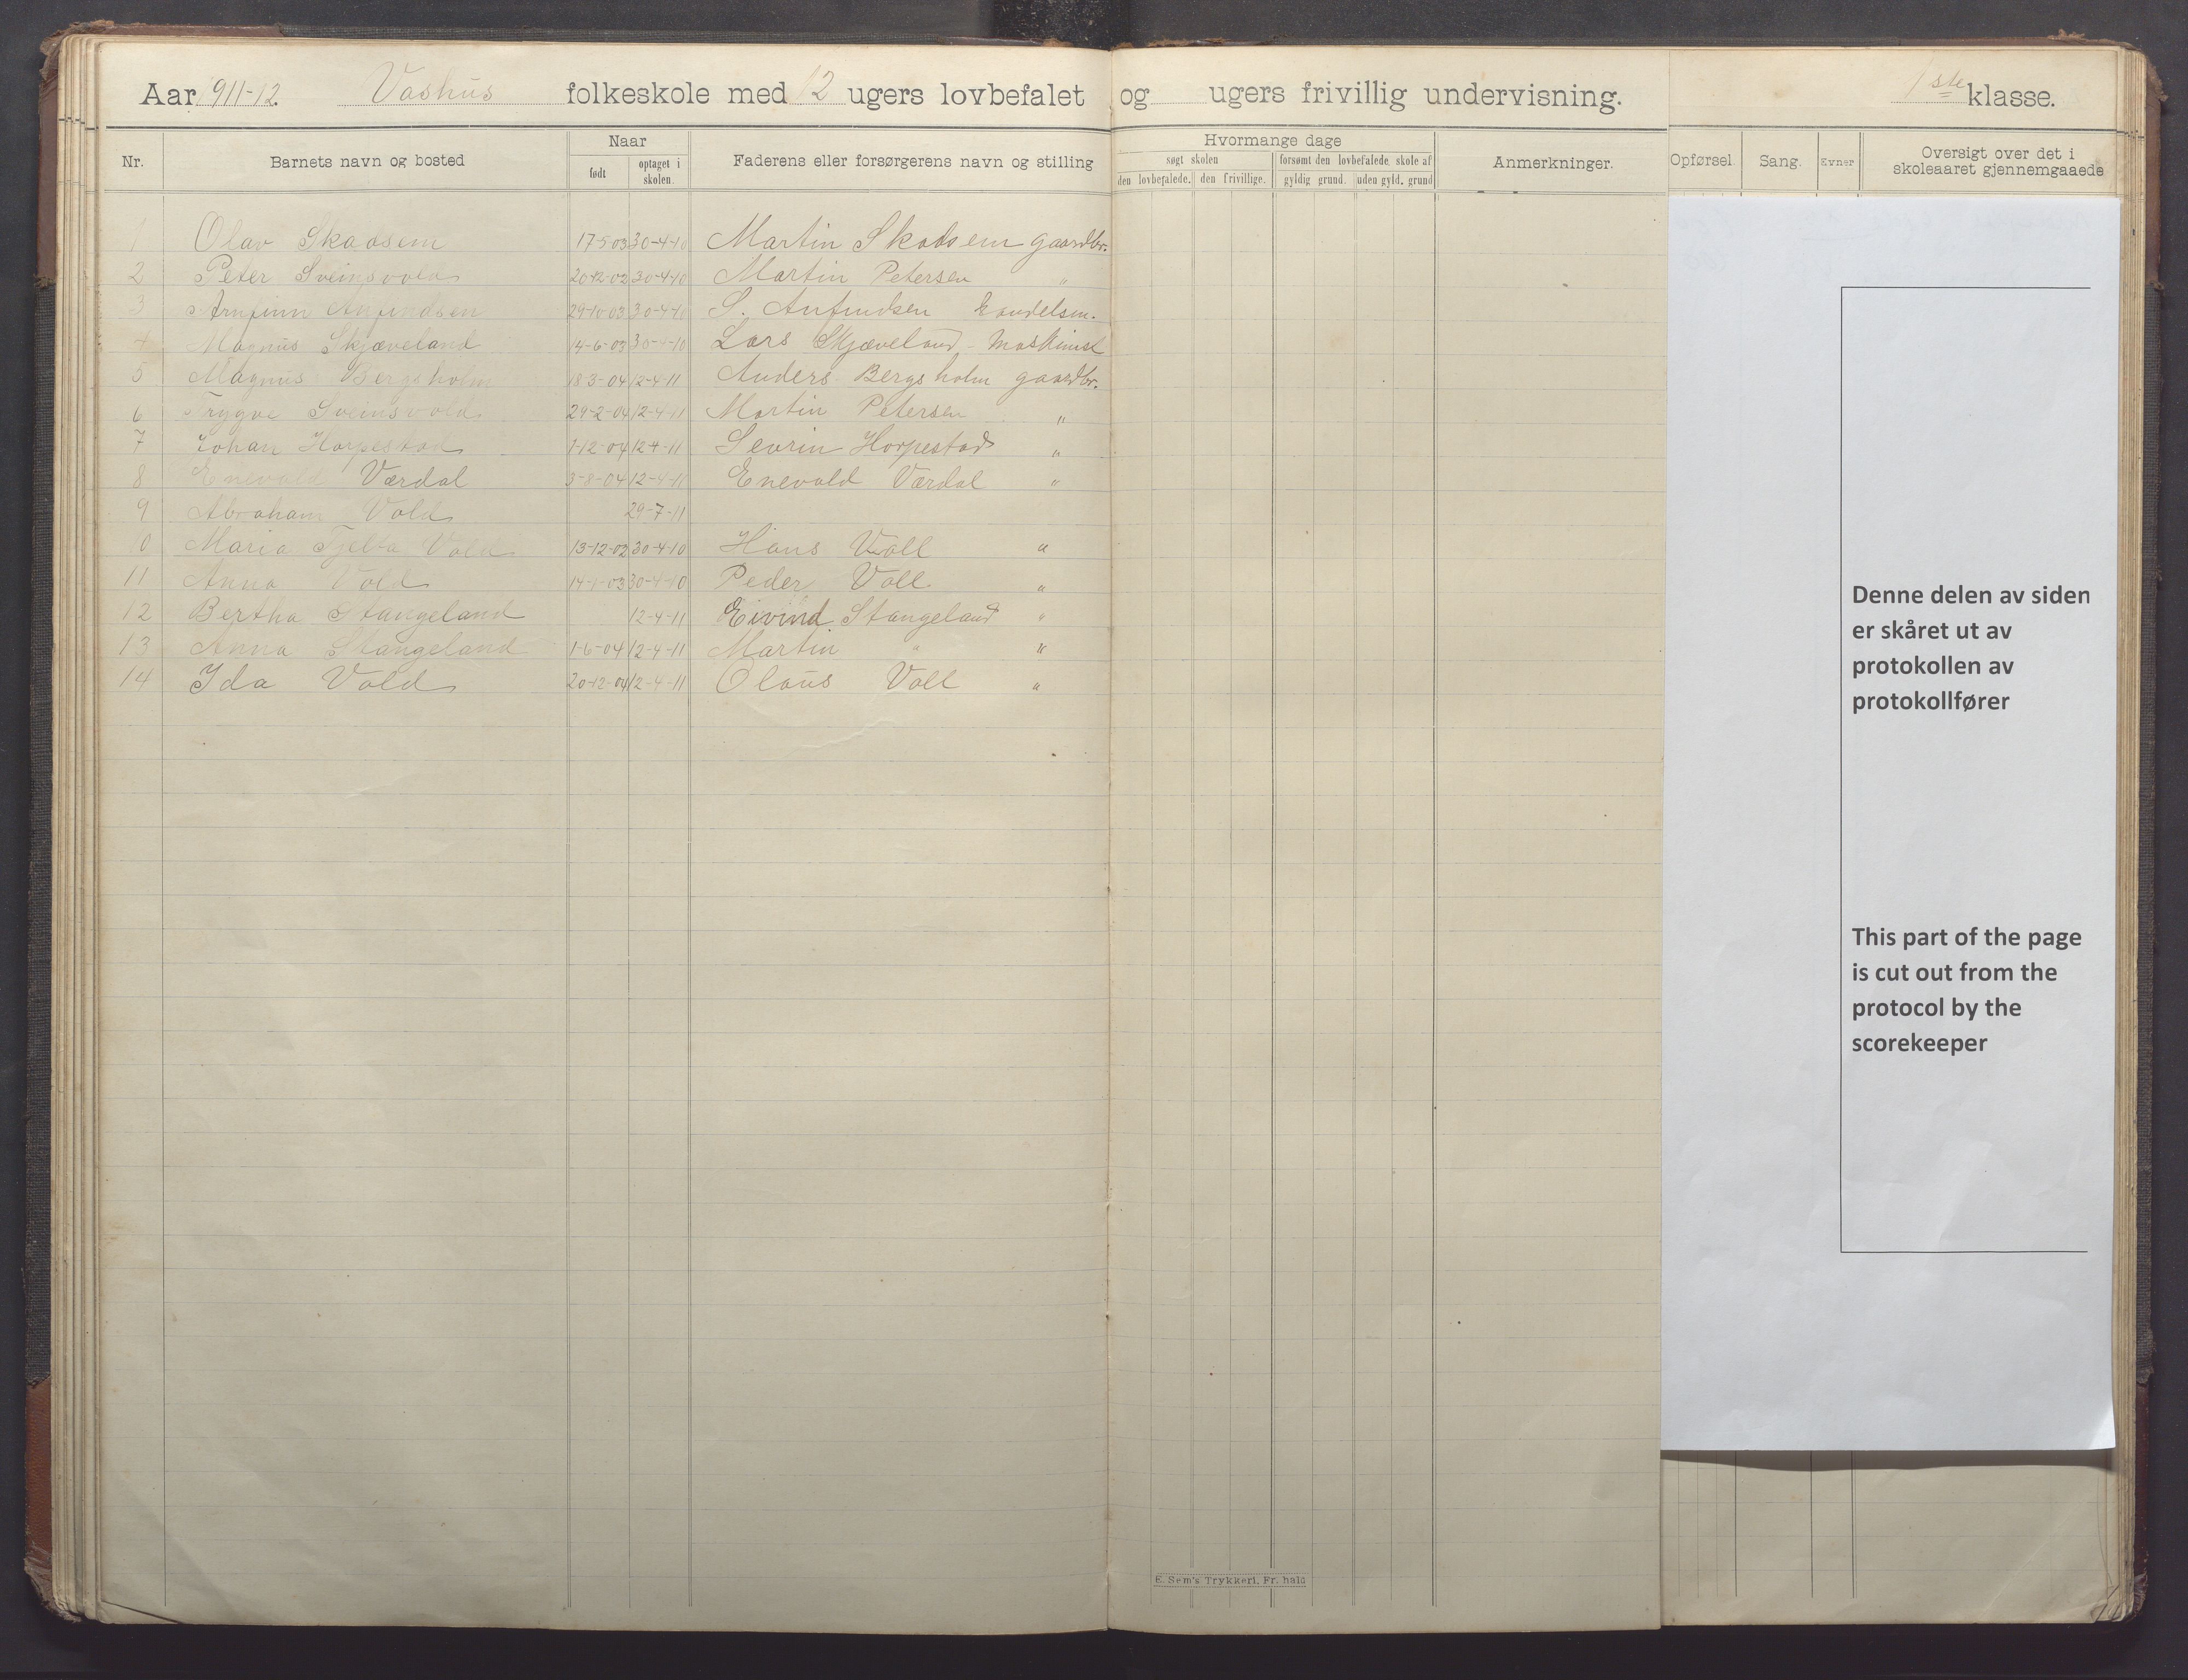 Aar 1911-12. Vashus folkeskole med 12 ugers lovbefalet og ugers frivillig undervisning. 1ste klasse.
Nr. Barnets navn og bosted Naar født optaget i skolen. Faderens eller forsørgerens navn og stilling Hvormange dage søgt skolen den lovbefalede. den frivillige. forsømt den lovbefalede skole af gyldig grund. uden gyld. grund Anmerkninger. Opførsel. Sang. Evner Oversigt over det i skoleaaret gjennemgaaede
1 Olav Skadsem 17-5-03 30-4-10 Martin Skadsem gaardbr.
2 Peter Sveinsvold 20-12-02 30-4-10 Martin Petersen "
3 Arnfinn Anfindsen 29-10-03 30-4-10 S. Anfindsen handelsm.
4 Magnus Skjæveland 14-6-03 30-4-10 Lars Skjæveland - Maskinist
5 Magnus Bergsholm 18-3-04 12-4-11 Anders Bergsholm gaardbr.
6 Trygve Sveinsvold 29-2-04 12-4-11 Martin Petersen "
7 Johan Horpestad 1-12-04 12-4-11 Sevrin Horpestad "
8 Enevald Værdal 3-8-04 12-4-11 Enevald Værdal "
9 Abraham Vold 29-7-11
10 Maria Tjelta Vold 13-12-02 30-4-10 Hans Voll "
11 Anna Vold 14-1-03 30-4-10 Peder Voll "
12 Bertha Stangeland 12-4-11 Eivind Stangeland "
13 Anna Stangeland 1-6-04 12-4-11 Martin " "
14 Ida Vold 20-12-04 12-4-11 Olaus Voll "
Denne delen av siden
er skåret ut av
protokollen av
protokollfører
This part of the page
is cut out from the
protocol by the
scorekeeper
E. Sem's Trykkeri, Fr. hald